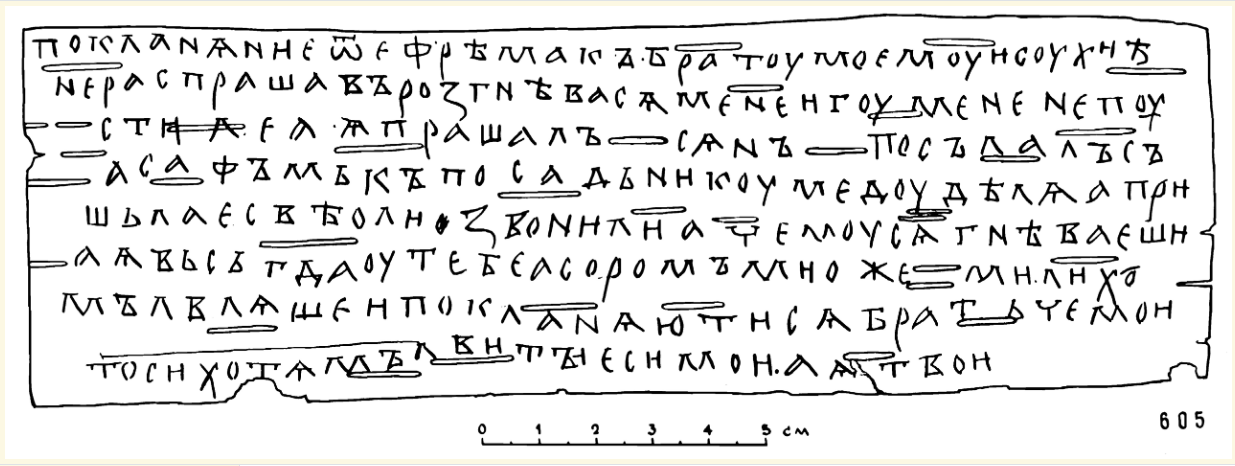 покланѧние ѿ ефрѣма къ · братоу моемоу исоухиѣ
не распрашавъ розгнѣвасѧ мене игоумене не поу
стиле а ѧ прашалъ сѧ нъ посълалъ съ
асафъмь къ посадьникоу медоу дѣлѧ а при
шьла есвѣ оли звонили а чемоу сѧ гнѣваеши
а ѧ вьсьгда оу тебе а соромъ мн оже ми лихо
мълвлѧше и покланѧю ти сѧ братьче мои
то си хотѧ мълви ты еси мои · а ѧ твои
0 1 2 3 4 5 см
605